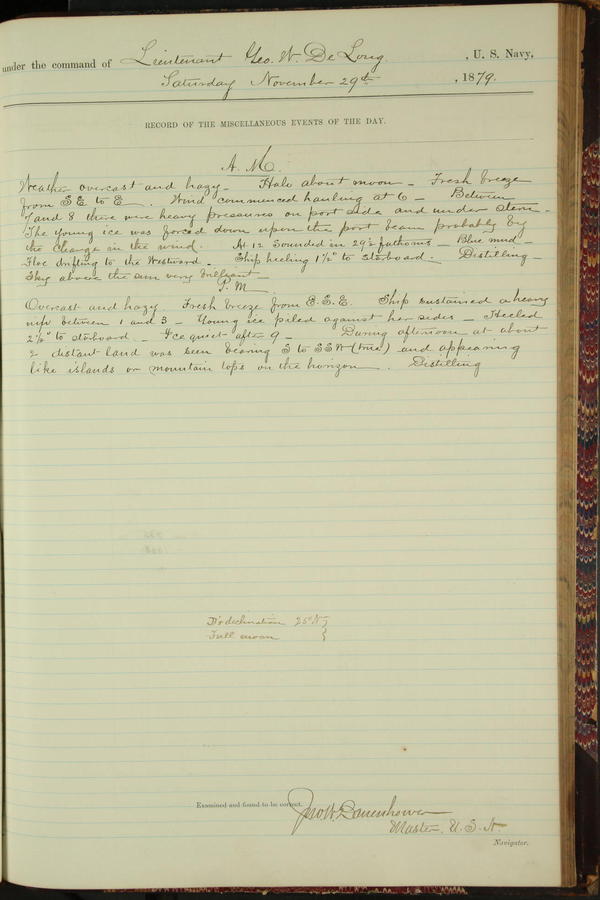 under the command of Lieutenant Geo. W. De Long, U. S. Navy,
Saturday November 29th, 1879.
RECORD OF THE MISCELLANEOUS EVENTS OF THE DAY.
A. M.
Weather overcast and hazy – Halo about moon – Fresh breeze
from SE to E. Wind commenced hauling at 6 – Between
7 and 8 there were heavy pressures on port side and under stern –
The young ice was forced down upon the port beam probably by
the change in the wind. At 12 sounded in 29½ fathoms – Blue mud –
Floe drifting to the Westward – Ship heeling 1½° to starboard. Distilling –
Sky above the sun very brilliant –
P. M.
Overcast and hazy. Fresh breeze from E.S.E. Ship sustained a heavy
nip between 1 and 3 – Young ice piled against her sides – Heeled
2½° to starboard – Ice quiet after 9 – During afternoon at about
2 distant land was seen bearing S to SSW (true) and appearing
like islands or mountain tops on the horizon. Distilling
declination 25° N }
Full moon }
Examined and found to be correct.
Jno W. Danenhower
Master, U. S. N.
Navigator.